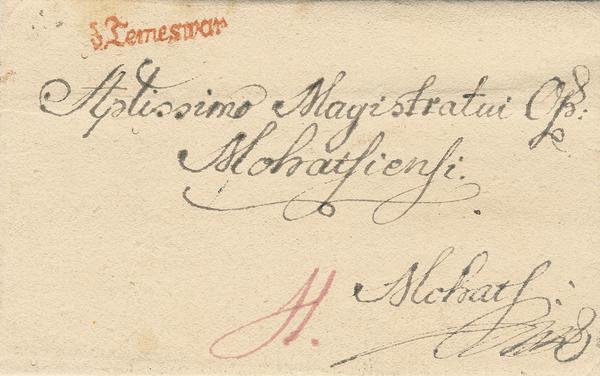 v. Temeswar
Aptissimo Magistratui Opp:
Mohatsiensi.
Mohats: